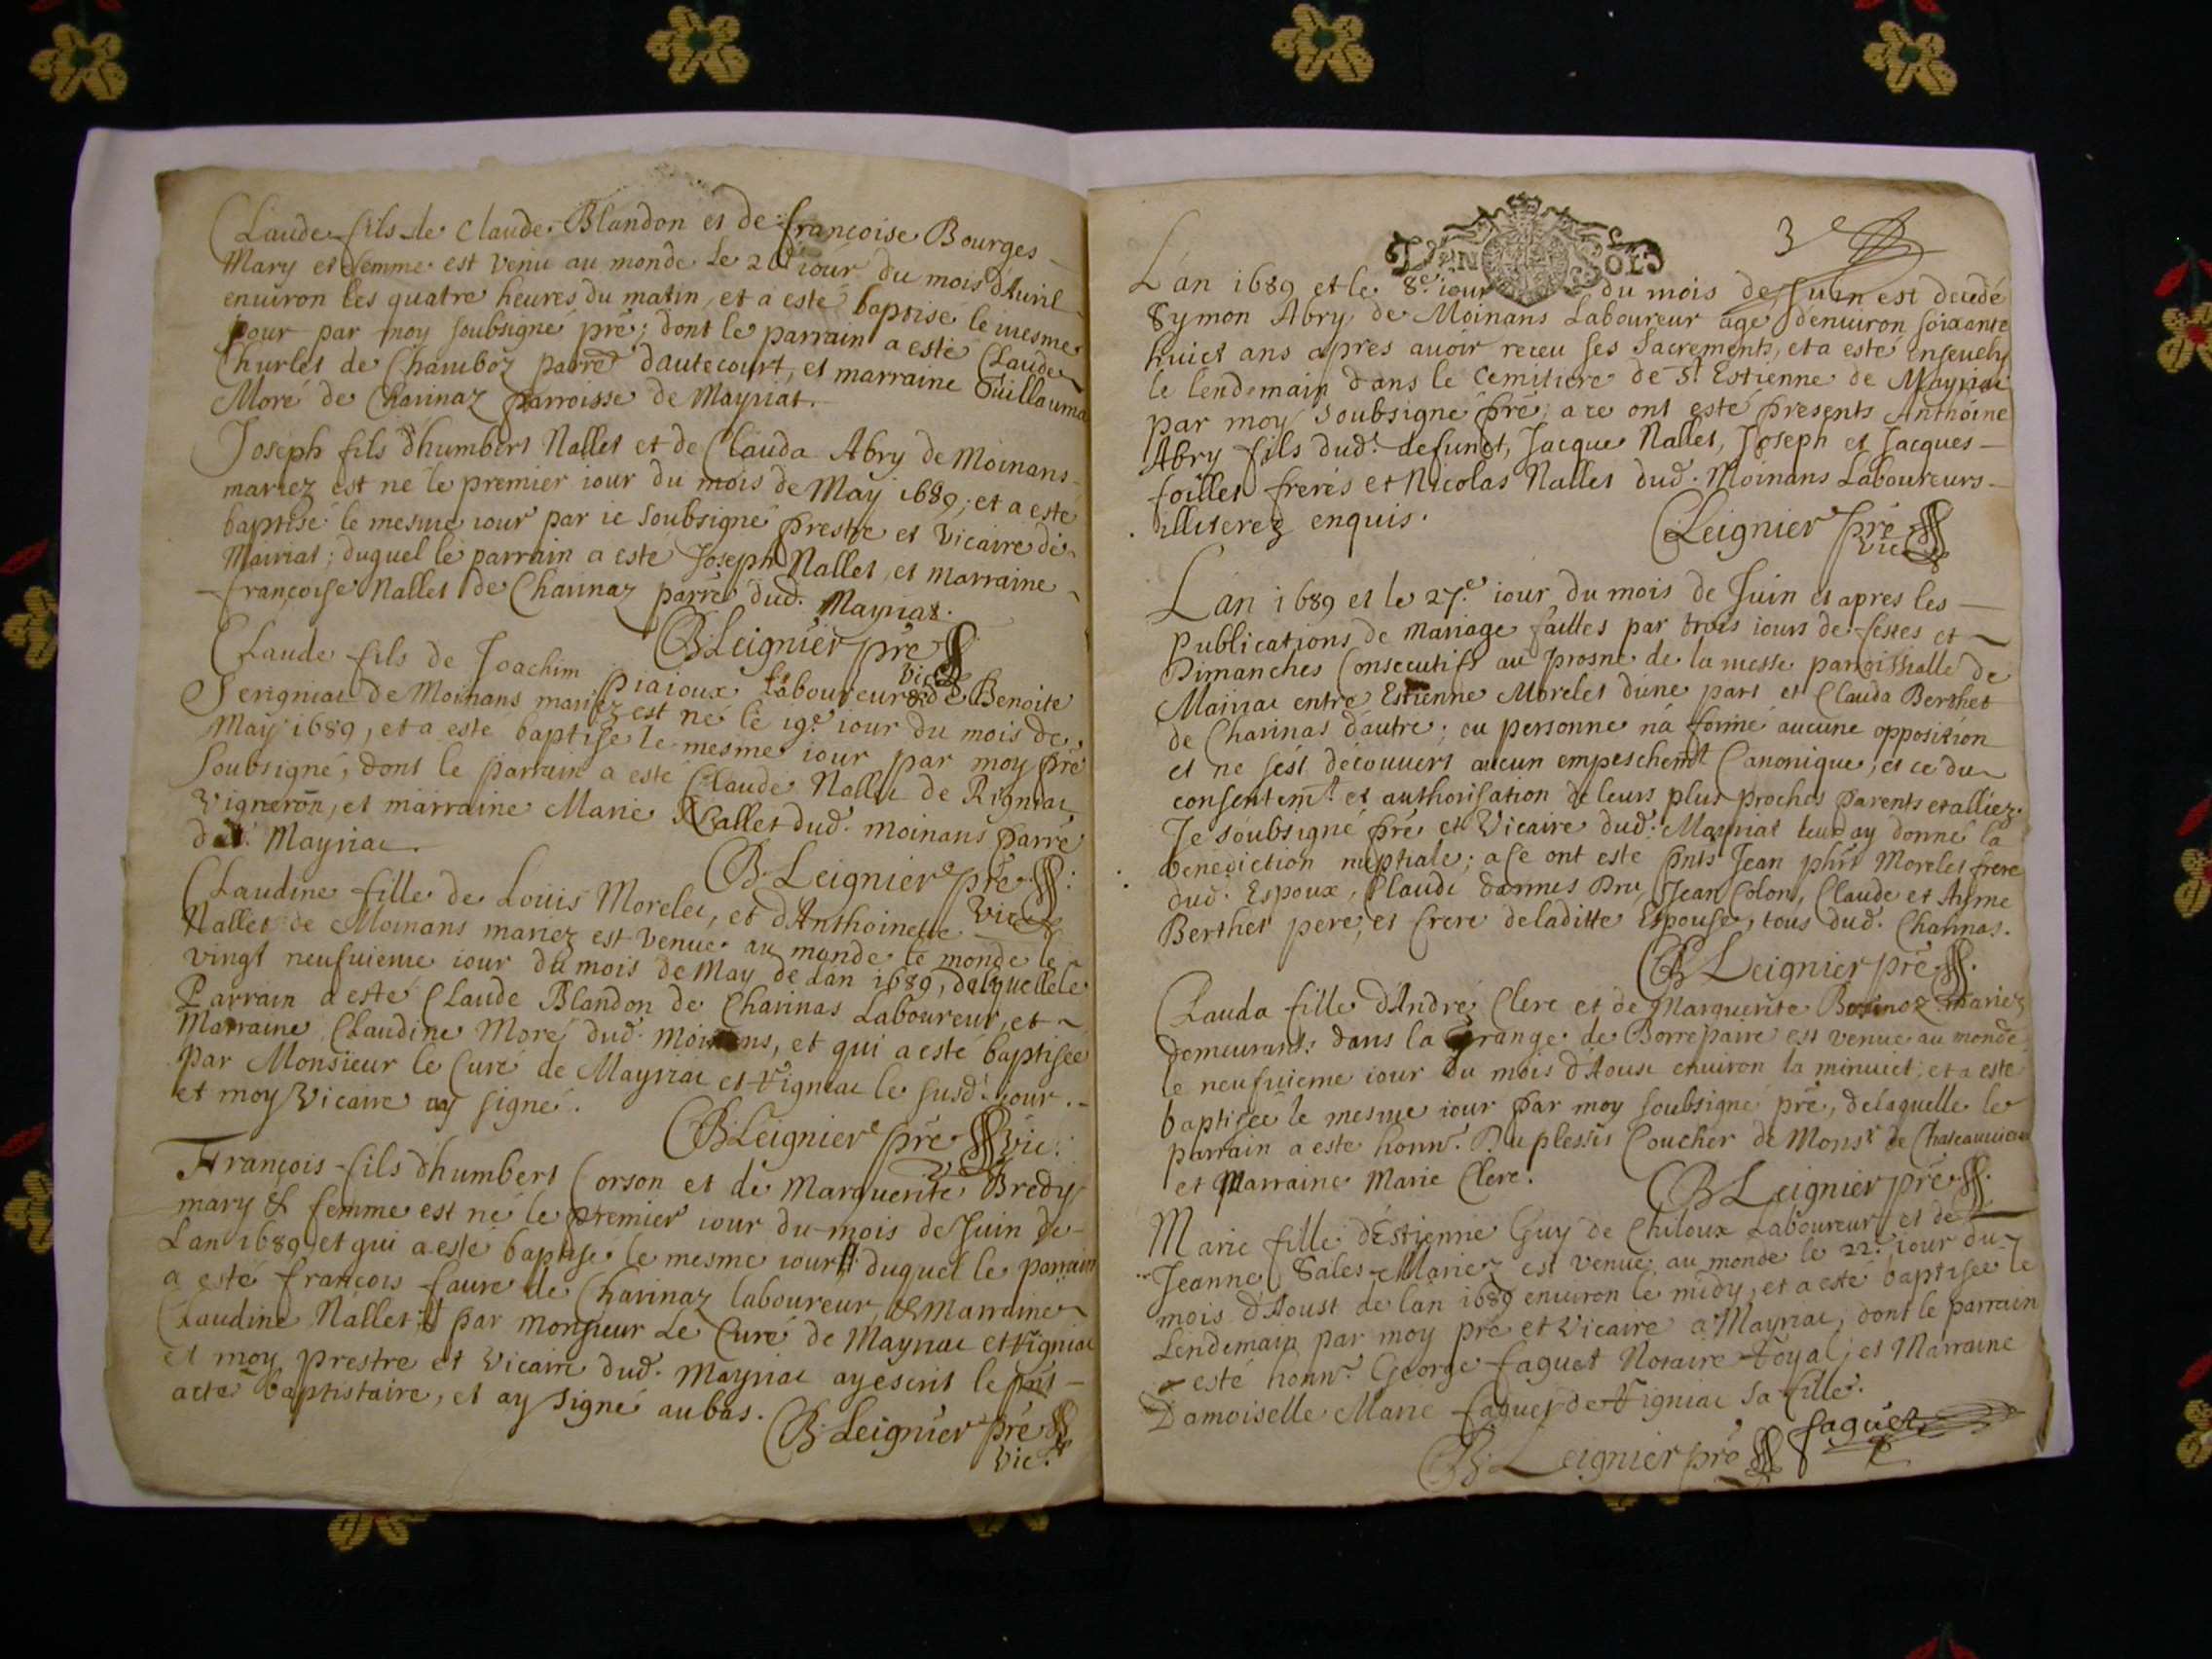 Claude fils de Claude Blandon et de françoise Bourges
Mary et femme est venu au monde Le jour du mois d'Auril
enuiron les quatre heures du matin, et a esté baptise le mesme
jour par moy soubsigné pré; dont le parrain a esté Claude
Churlet de Chamboz parre d'autecourt, et marraine Guillauma
Moré de Charinaz parroisse de Mayriat.
Joseph fils d'humbert Nallet et de Clauda Abry de Moinans
mariez est né le premier iour du mois de May 1689; et a esté
baptisé le mesme iour par ie soubsigné prestre et Vicaire de
Mairiat; duquel le parrain a esté Joseph Nallet, et marraine
françoise Nallet de Charinaz parre dud. Mayriat.
B. Leignier pré
vic.
Claude fils de Joachim Piaioux Laboureur & de Benoite
Serigniat de Moinans mariez est né le 19e iour du mois de
May 1689, et a esté baptisé le mesme iour par moy pré
soubsigné, dont le parrain a esté Claude Nallet de Rigniat
Vigneron, et marraine Marie Nallet dud. Moinans parre
dud. Mayriat.
B. Leignier pré
Vic.
Claudine fille de Loüis Morelet, et d'Anthoinette
Nallet de Moinans mariez est venue au monde le monde le
vingt neufuieme iour du mois de May de Lan 1689, de laquelle le
Parrain a esté Claude Blandon de Charinas Laboureur, et
Marraine Claudine Moré dud. Moinans, et qui a esté baptisée
par Monsieur le Curé de Mayriat et Rigniat le susd. iour
et moy Vicaire ay signé.
B. Leignier pré Vic.
François fils d'humbert Corson et de Marguerite Bredy
mary & femme est né le premier iour du mois de Juin de
Lan 1689 et qui a esté baptisé le mesme iour # duquel le parrain
a esté françois faure de Charinaz laboureur, & Marraine
Claudine Nallet # par monsieur Le Curé de Mayriat et Rigniat
et moy prestre et Vicaire dud. Mayriat ay escrit le pnt
acte baptistaire, et ay signé au bas.
B. Leignier pré
Vic.
3e
L'an 1689 et le 8e iour du mois de Juin est decedé
Symon Abry de Moinans Laboureur age d'enuiron soixante
huict ans apres auoir receu ses Sacrements, et a esté enseuely
le lendemain dans le Cemitiere de St Estienne de Mayriat
par moy soubsigné pré; a ce ont esté presents Anthoine
Abry fils dud. defunct, Jacque Nallet, Joseph et Jacques
foillet freres et Nicolas Nallet dud. Moinans Laboureurs
illiterez enquis.
B. Leignier pré
Vic.
L'an 1689 et le 27e iour du mois de Juin et apres les
Publications de Mariage faittes par trois iours de festes et
Dimanches Consecutifs au Prosne de la messe parroissialle de
Mairiat entre Estienne Morelet d'une part et Clauda Berthet
de Charinas d'autre; ou personne n'a formé aucune opposition
et ne s'est découuert aucun empeschemt Canonique, et ce du
consentemt et authorisation de leurs plus proches parents et alliez.
Je soubsigné pré et Vicaire dud. Mayriat leur ay donné la
benediction nuptiale; a ce ont esté pnts Jean Morelet frere
dud. Espoux, Claude Jean Colons, Claude et Ayme
Berthet pere, et frere de laditte Espouse, tous dud. Charinas.
B. Leignier pré
Clauda fille d'André Clere et de Marguerite mariez
demeurants dans la Grange de Borrepaire est venue au monde
le neufuieme iour du mois d'Aoust enuiron la minuict; et a esté
baptisée le mesme iour par moy soubsigné pré, de laquelle le
parrain a esté honn. Du plessis Coucher de Monsr de Chateauuieux
et Marraine Marie Clere.
B. Leignier pré
Marie fille d'Estienne Guy de Chiloux Laboureur et de
Jeanne Sales Mariez est venue au monde le 22e iour du
mois d'Aoust de lan 1689 enuiron le midy, et a esté baptisée le
Lendemain par moy pré et Vicaire a Mayriat, dont le parrain
a esté honn. George faguet Notaire Royal; et Marraine
Damoiselle Marie faguet de Rigniat sa fille.
B. Leignier pré faguet